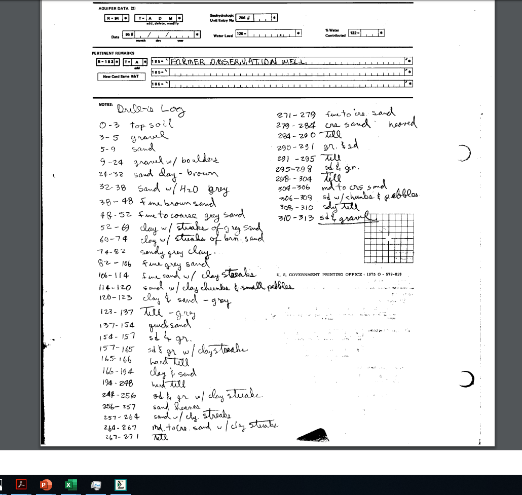 AQUIFER DATA (2)
Date
month day year
Water Level
Contributed
PERTINENT REMARKS
FORMER OBSERVATION WELL
NOTES:
Driller's Log
0-3 top soil
3-5 gravel
5-9 sand
9-24 gravel w/ boulders
24-32 sand clay - brown
32-38 sand w/ H2O grey
38-48 fine brown sand
48-52 fine to coarse grey sand
52-69 clay w/ streaks of grey sand
60-74 clay w/ streaks of brn sand
74-82 sandy grey clay
82-106 fine grey sand
106-114 fine sand w/ clay streaks
114-120 sand w/ clay chunks & small pebbles
120-123 clay & sand - grey
123-137 till - grey
137-154 quick sand
154-157 sd & gr.
157-165 sd & gr w/ clay streaks
165-166 hard till
166-194 clay & sand
194-248 hard till
248-256 sd & gr w/ clay streaks
256-257 sand heaves
257-264 sand w/ cly. streaks
264-267 md. to crs. sand w/ cly streaks
267-271 till
271-279 fine to crs. sand
279-284 crs sand heaved
284-290 till
290-291 gr. & sd
291-295 till
295-298 sd & gr.
298-304 till
304-306 md to crs sand
306-308 sd w/ chunks & pebbles
308-310 sdy till
310-313 sd & gravel
U.S. GOVERNMENT PRINTING OFFICE: 1975 O